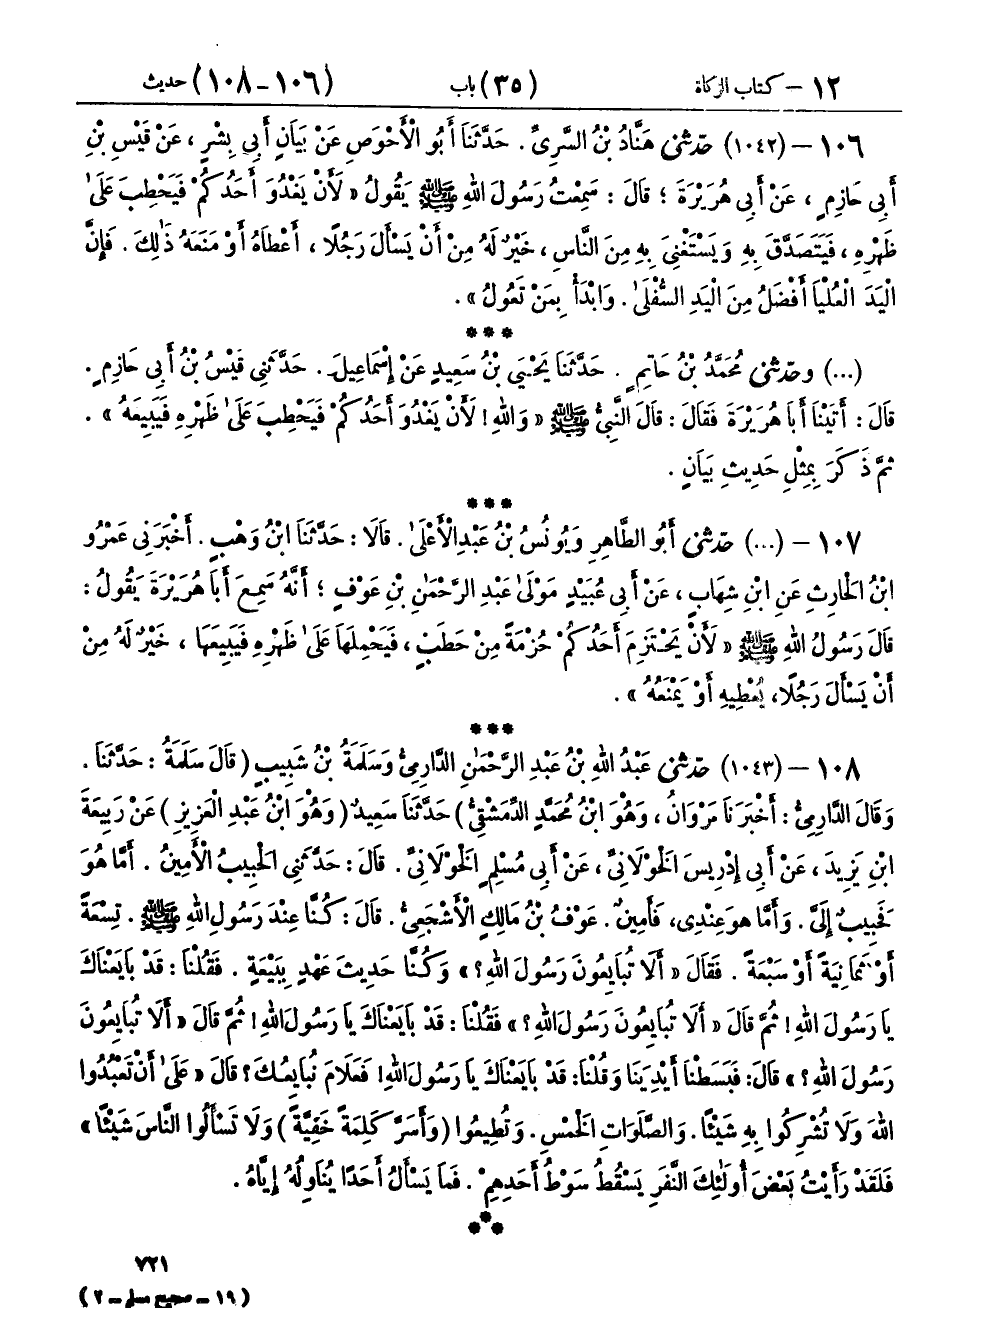 ١٢ – كتاب الزكاة (٣٥) باب (١٠٦-١٠٨) حديث
١٠٦ – (١٠٤٢) حَدَّثَنِي هَنَّادُ بْنُ السَّرِيِّ . حَدَّثَنَا أَبُو الْأَحْوَصِ عَنْ بَيَانٍ أَبِي بِشْرٍ ، عَنْ قَيْسِ بْنِ
أَبِي حَازِمٍ ، عَنْ أَبِي هُرَيْرَةَ ؛ قَالَ : سَمِعْتُ رَسُولَ اللهِ ﷺ يَقُولُ « لَأَنْ يَغْدُوَ أَحَدُكُمْ فَيَحْطِبَ عَلَىٰ
ظَهْرِهِ ، فَيَتَصَدَّقَ بِهِ وَيَسْتَغْنِيَ بِهِ مِنَ النَّاسِ ، خَيْرٌ لَهُ مِنْ أَنْ يَسْأَلَ رَجُلًا ، أَعْطَاهُ أَوْ مَنَعَهُ ذَٰلِكَ . فَإِنَّ
الْيَدَ الْعُلْيَا أَفْضَلُ مِنَ الْيَدِ السُّفْلَىٰ . وَابْدَأْ بِمَنْ تَعُولُ » .
***
(...) وحَدَّثَنِي مُحَمَّدُ بْنُ حَاتِمٍ . حَدَّثَنَا يَحْيَي بْنُ سَعِيدٍ عَنْ إِسْمَاعِيلَ . حَدَّثَنِي قَيْسُ بْنُ أَبِي حَازِمٍ .
قَالَ : أَتَيْنَا أَبَا هُرَيْرَةَ فَقَالَ : قَالَ النَّبِيُّ ﷺ « وَاللهِ ! لَأَنْ يَغْدُوَ أَحَدُكُمْ فَيَحْطِبَ عَلَىٰ ظَهْرِهِ فَيَبِيعَهُ » .
ثُمَّ ذَكَرَ بِمِثْلِ حَدِيثِ بَيَانٍ .
***
١٠٧ – (...) حَدَّثَنِي أَبُو الطَّاهِرِ وَيُونُسُ بْنُ عَبْدِ الْأَعْلَىٰ . قَالَا : حَدَّثَنَا ابْنُ وَهْبٍ . أَخْبَرَنِي عَمْرُو
ابْنُ الْحَارِثِ عَنِ ابْنِ شِهَابٍ ، عَنْ أَبِي عُبَيْدٍ مَوْلَىٰ عَبْدِ الرَّحْمَٰنِ بْنِ عَوْفٍ ؛ أَنَّهُ سَمِعَ أَبَا هُرَيْرَةَ يَقُولُ :
قَالَ رَسُولُ اللهِ ﷺ « لَأَنْ يَحْتَزِمَ أَحَدُكُمْ حُزْمَةً مِنْ حَطَبٍ ، فَيَحْمِلَهَا عَلَىٰ ظَهْرِهِ فَيَبِيعَهَا ، خَيْرٌ لَهُ مِنْ
أَنْ يَسْأَلَ رَجُلًا، يُعْطِيهِ أَوْ يَمْنَعُهُ » .
***
١٠٨ – (١٠٤٣) حَدَّثَنِي عَبْدُ اللهِ بْنُ عَبْدِ الرَّحْمَٰنِ الدَّارِمِيُّ وَسَلَمَةُ بْنُ شَبِيبٍ (قَالَ سَلَمَةُ : حَدَّثَنَا .
وَقَالَ الدَّارِمِيُّ : أَخْبَرَنَا مَرْوَانُ ، وَهُوَ ابْنُ مُحَمَّدٍ الدِّمَشْقِيُّ) حَدَّثَنَا سَعِيدٌ (وَهُوَ ابْنُ عَبْدِ الْعَزِيزِ) عَنْ رَبِيعَةَ
ابْنِ يَزِيدَ ، عَنْ أَبِي إِدْرِيسَ الْخَوْلَانِيِّ ، عَنْ أَبِي مُسْلِمٍ الْخَوْلَانِيِّ . قَالَ : حَدَّثَنِي الْحَبِيبُ الْأَمِينُ . أَمَّا هُوَ
فَحَبِيبٌ إِلَيَّ . وَأَمَّا هُوَ عِنْدِي، فَأَمِينٌ . عَوْفُ بْنُ مَالِكٍ الْأَشْجَعِيُّ . قَالَ : كُنَّا عِنْدَ رَسُولِ اللهِ ﷺ . تِسْعَةً
أَوْ ثَمَانِيَةً أَوْ سَبْعَةً . فَقَالَ « أَلَا تُبَايِعُونَ رَسُولَ اللهِ ؟ » وَكُنَّا حَدِيثَ عَهْدٍ بِبَيْعَةٍ . فَقُلْنَا : قَدْ بَايَعْنَاكَ
يَا رَسُولَ اللهِ ! ثُمَّ قَالَ « أَلَا تُبَايِعُونَ رَسُولَ اللهِ ؟ » فَقُلْنَا : قَدْ بَايَعْنَاكَ يَا رَسُولَ اللهِ ! ثُمَّ قَالَ « أَلَا تُبَايِعُونَ
رَسُولَ اللهِ ؟ » قَالَ : فَبَسَطْنَا أَيْدِيَنَا وَقُلْنَا: قَدْ بَايَعْنَاكَ يَا رَسُولَ اللهِ ! فَعَلَامَ نُبَايِعُكَ ؟ قَالَ « عَلَىٰ أَنْ تَعْبُدُوا
اللهَ وَلَا تُشْرِكُوا بِهِ شَيْئًا . وَالصَّلَوَاتِ الْخَمْسِ . وَتُطِيعُوا (وَأَسَرَّ كَلِمَةً خَفِيَّةً) وَلَا تَسْأَلُوا النَّاسَ شَيْئًا »
فَلَقَدْ رَأَيْتُ بَعْضَ أُولَٰئِكَ النَّفَرِ يَسْقُطُ سَوْطُ أَحَدِهِمْ . فَمَا يَسْأَلُ أَحَدًا يُنَاوِلُهُ إِيَّاهُ .
***
٧٢١
(١٩ – صحيح مسلم – ٢)